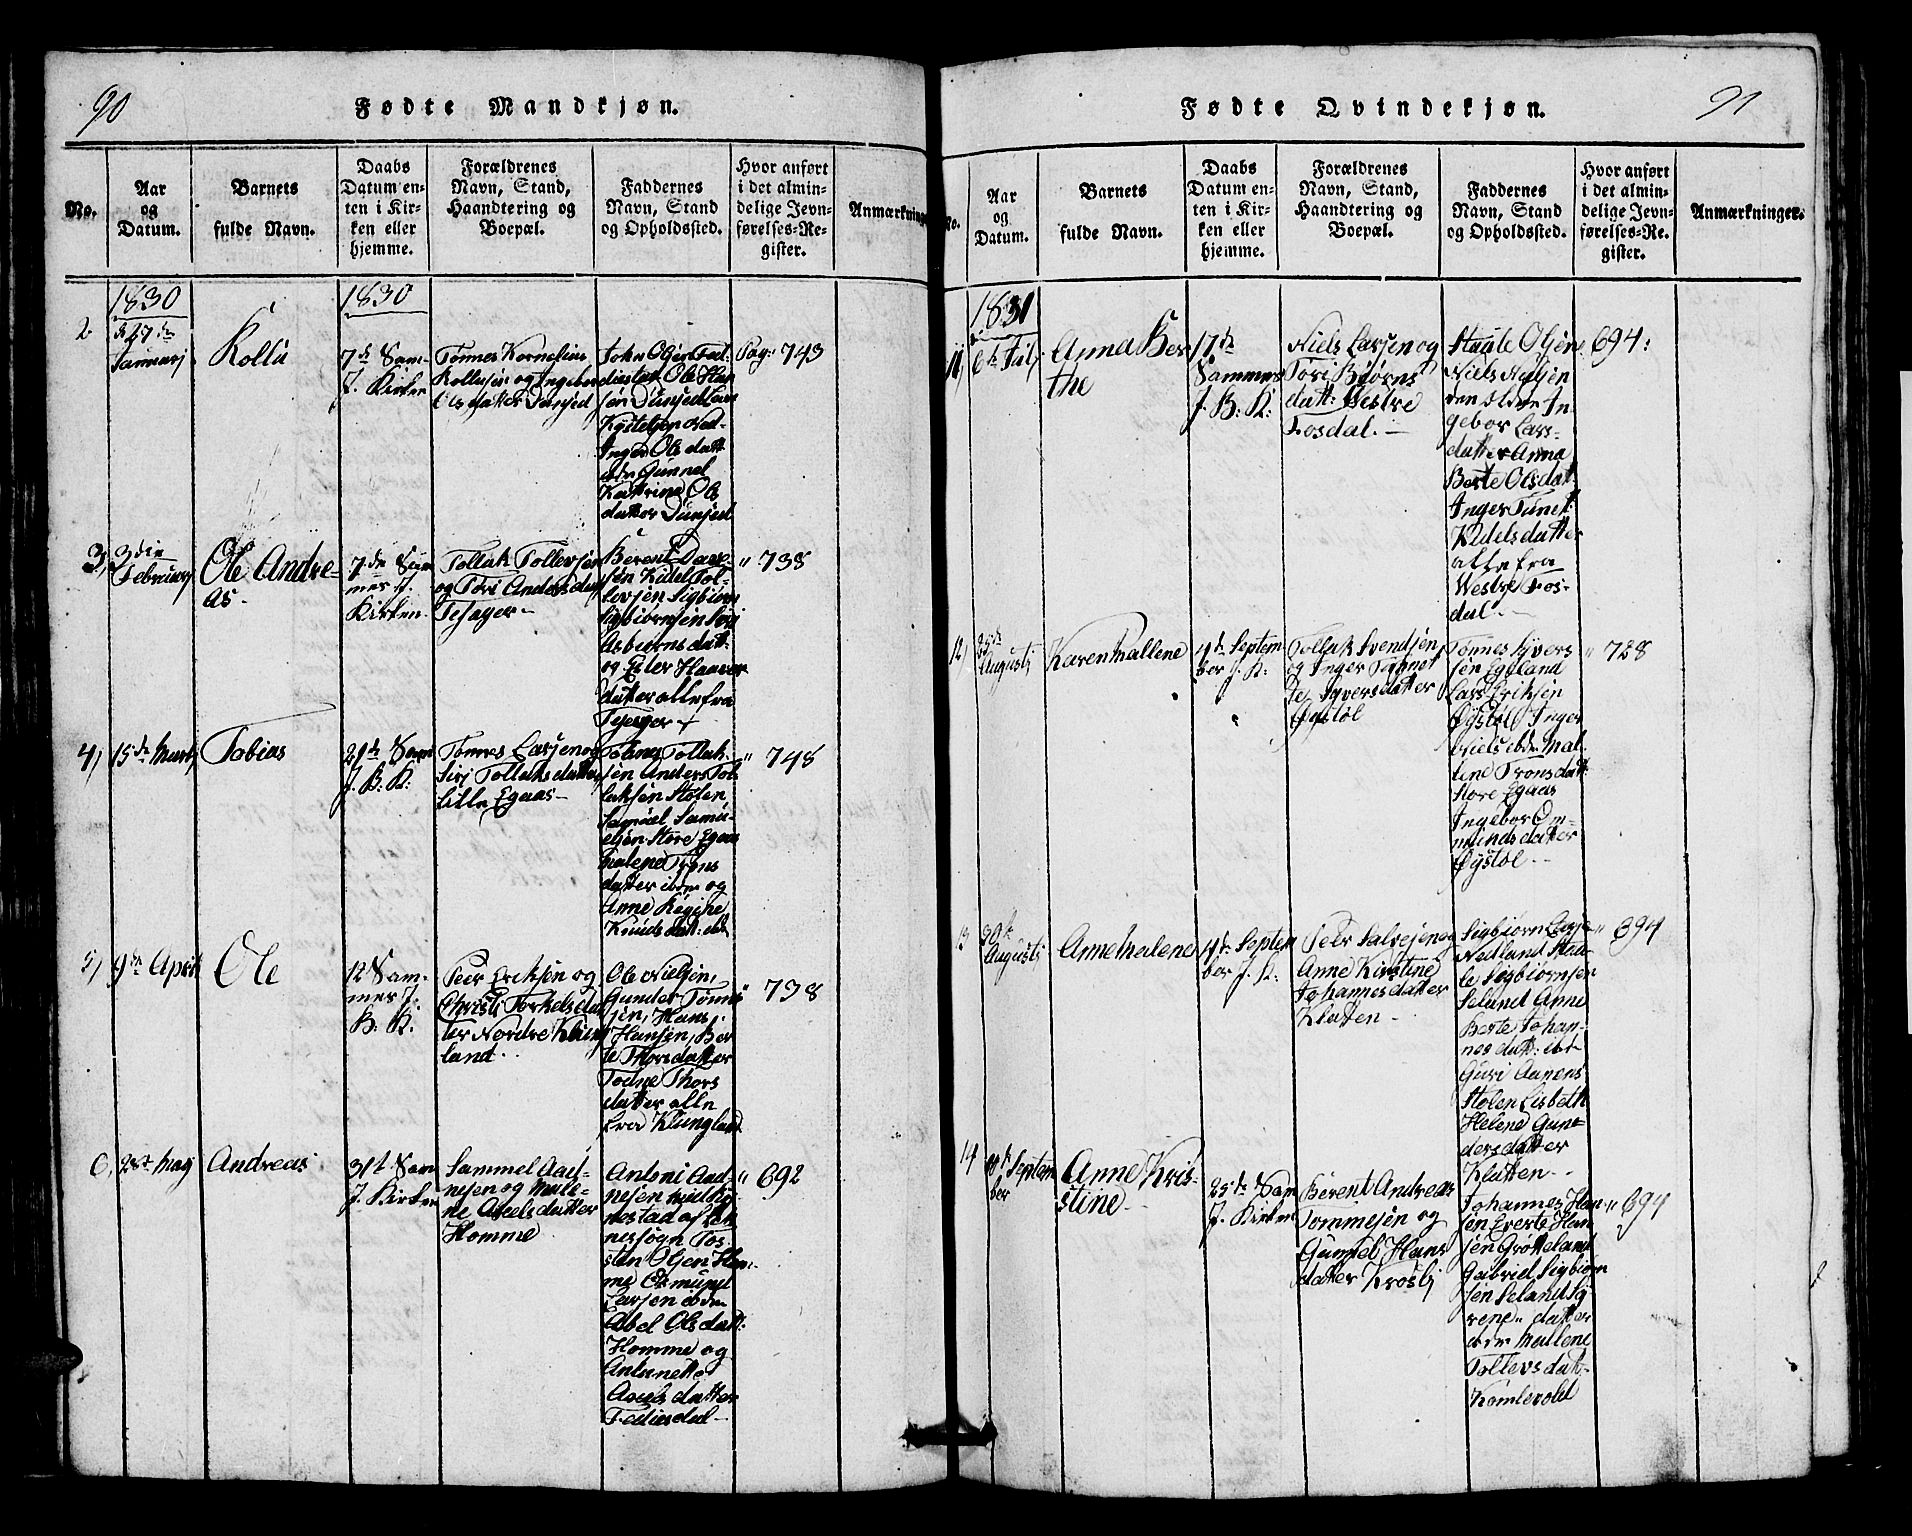 90
Fødte Mandkjøn.
No.
Aar
og
Datum.
Barnets
fulde Navn.
Daabs
Datum en-
ten i Kir-
ken eller
hjemme.
Forældrenes
Navn, Stand,
Haandtering og
Boepæl.
Faddernes
Navn, Stand
og Opholdssted.
Hvor anført
i det almin-
delige Jevn-
førelses-Re-
gister.
Anmærkninger
1830
1830
2
27de
Januarj
7de Sam-
J. Kirken
Tønnes Kornelius
og Ingebor
Ols datter
John Olsen
Ole Han
sen
Inger Ols datt
Gunnel
Kattrine Ols
datter
Pag: 743
3,
3die
Februarj
Ole Andre-
as.
7de Sam
mes J.
Kirken.
Tollak Tollevsen
og Tori Anders dat
Berent
sen Kidel Tol-
levsen Sigbiørn
Sigbiørnsen Siri
Asbiørns datt:
og Ester
datter alle fra
" 738
4,
15de Martj
Tobias
21de Sam
J. B: K:
Tønnes Larsen og
Siri Tollaks datter
Lille Egaas-
Tollak-
sen Anders Tol
laksen Stølen
Samuel Samu-
elsen Store Egaas
Malene Trons
datter ibdm og
Anne Regine
Knuds datt: ibd
" 748
5,
9de April
Ole
12 Sam-
mes J.
B: K:
Peer Eriksen og
Christi Torkels dat
ter Nordre Klung
land.
Ole Nielsen,
Gunder Tønnes
sen, Hans
Hansen, Ber
te Thors datter
Todne Thors
datter alle
fra Klungland
" 738
6,
28de Maj
Andreas
31te Sam
J. Kirken
Sammel
nesen og Male-
ne Axels datter
Homme
Antoni
nes sogn Tos-
sten Olsen Hom-
me
Larsen ibdm
Abel Ols datt:
Homme og
Antonette
Axels datter
" 692
91
Fødte Qvindekjøn.
No.
Aar
og
Datum.
Barnets
fulde Navn.
Daabs
Datum en-
ten i Kir-
ken eller
hjemme.
Forældrenes
Navn, Stand,
Haandtering og
Boepæl.
Faddernes
Navn, Stand
og Opholdssted.
Hvor anført
i det almin-
delige Jevn-
førelses-Re-
gister.
Anmærkninger.
1831
11,
6te Julj
Anna Ber
the
17de
Sammes
J. B: K:
Niels Larsen og
Tori Biørns
datt: Vestre
Fosdal.-
Staale Olsen
Niels Nilsen
den eldre In
gebor Lars-
datter Anna
Berte Olsdat
Inger Tunet:
Kidels datter
alle fra
Westre Fos-
dal.-
694:
12,
25de
Augustj
Karen Mallene
4de Septem
ber J. K:
Tollak Svendsen
og Inger
te Iyvers datter
Øystøl
Tønnes Iyvers
sen Egeland
Lars Eriksen
Øystøl Inger
Niels ibdm Mal-
lene Trons datt
Store Egaas
Ingebor Om-
munds datter
Øystøl--
" 728
13
30te
Augustj
Anne Malene
4de Septem
ber J. K:
Peer Salvesen og
Anne Kirstine
Johannes datter
Klatten-
Sigbiørn Larse
Nedland Staa-
le Sigbiørnsen
Selund Anne
Berte Johan-
nes datt: ibd
Guri
Stølen Lisbeth
Helene Gun-
ders datter
Klatten--
" 694
14
Septem
ber
Anne Kris-
stine-
25de Sam
J. Kirken
Berent Andreas
Tommesen og
Gunnel Hans
datter Krosli
Johannes Han
sen Everte Han
sen Grøtteland
Gabriel Sigbiørn
sen Seland Sy
rene" datter
ibdm Mallene
Tollevs datt
Komlevold
" 694